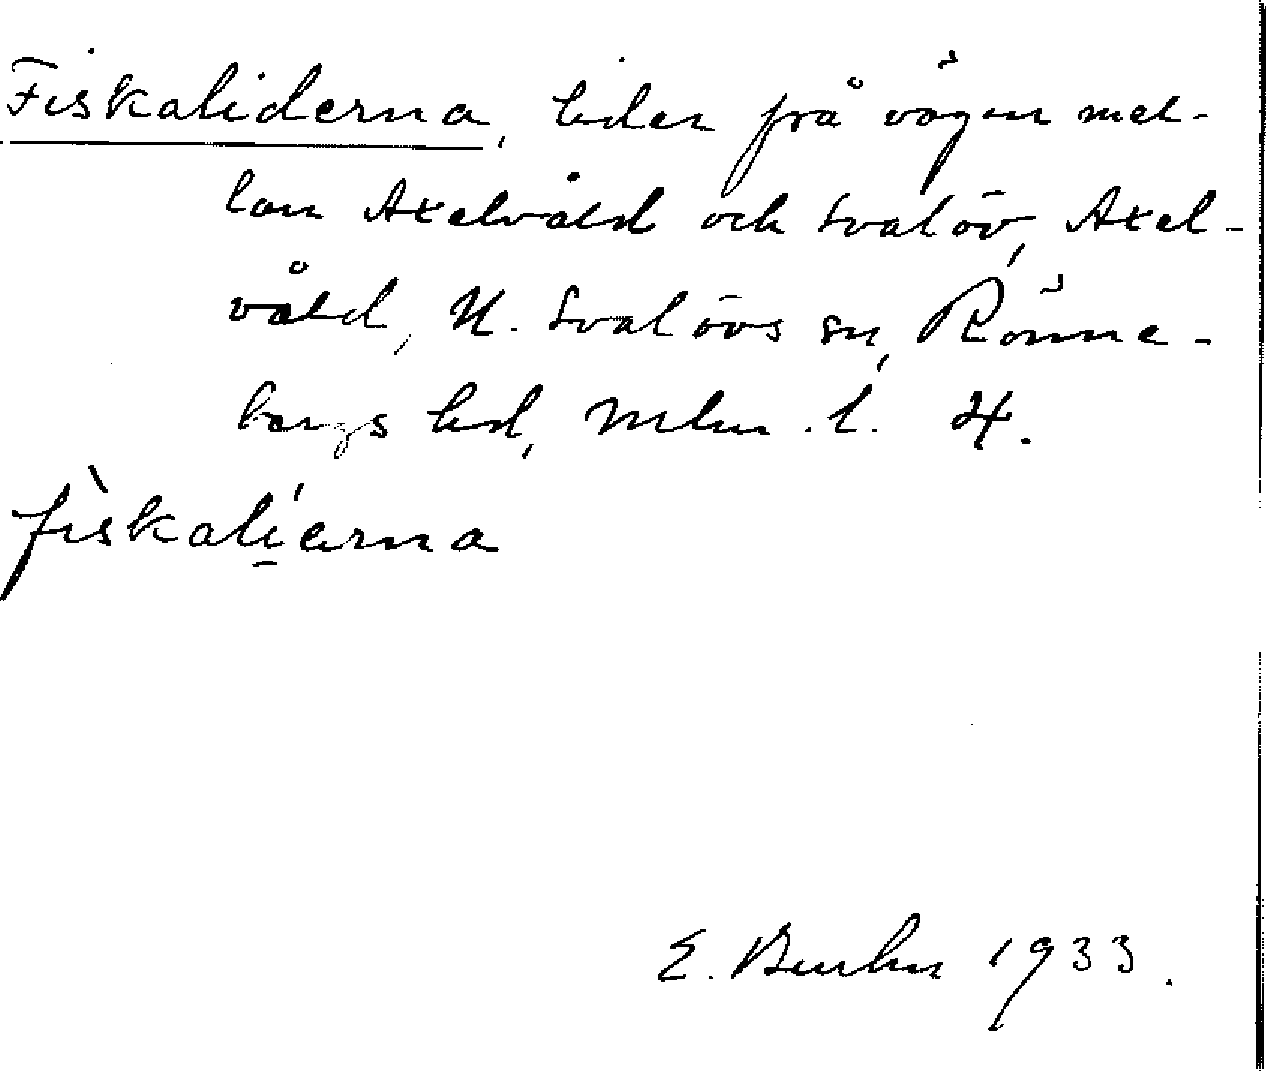 Fiskaliderna, lider på vägen mel-
lan Axelvåld och Svalöv, Axel-
våld, N. Svalövs sn, Rönne-
bergs hd, Mlm. l. 4.
fiskalierna
E. Buhn 1933.